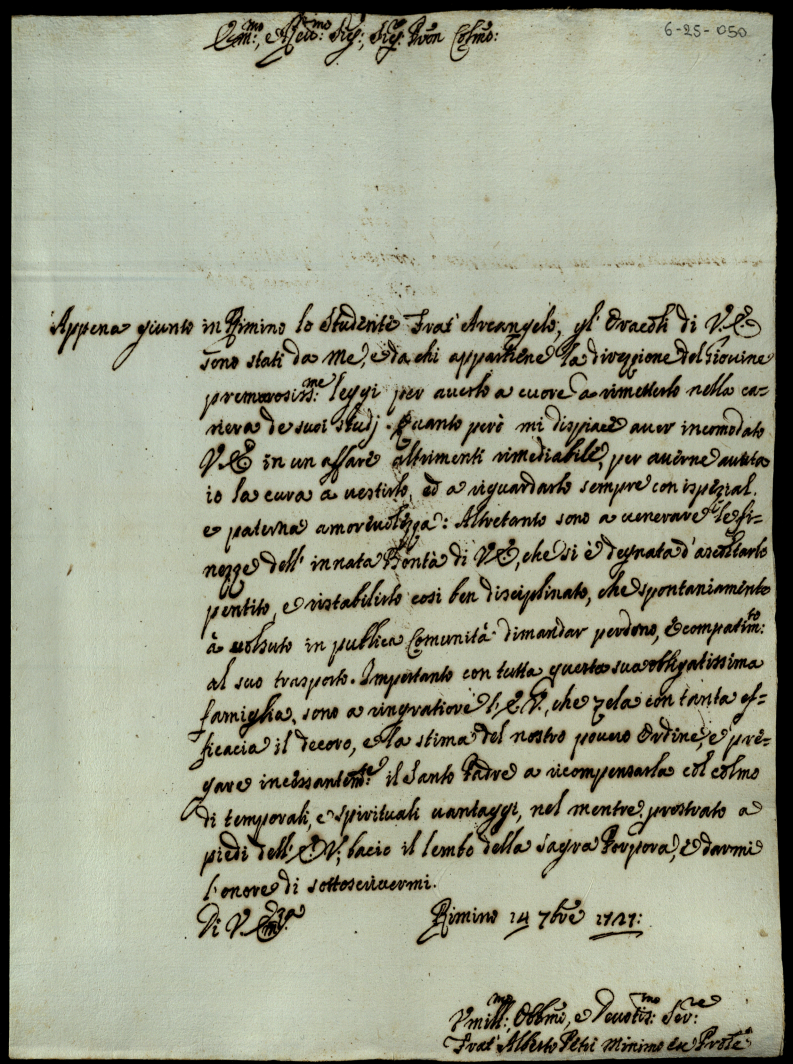 Em:mo, e Rev:mo Sig:, Sig:r Pron Colmo:
6-25-050
Appena giunto in Rimino lo Studente Frat' Arcangelo, gl' Oracoli di V.E.
sono stati da me, e da chi appartiene la direzzione del Giovine
premorosiss:me leggi per auerlo a cuore a rimetterlo nella ca-
riera de suoi studj. Quanto però mi dispiace auer incomodato
V.E. in un affare altrimenti rimediabile, per auerne auuta
io la cura a uestirlo, ed a riguardarlo sempre con ispezial.
e paterna amoreuolezza: Altretanto sono a uenerare le fi-
nezze dell' innata Bontà di V.E., che si è degnata d'ascoltarlo
pentito, e ristabilirlo cosi ben disciplinato, che spontaniamente
à uolsuto in publica Comunità dimandar perdono, e compatim:to
al suo trasporto. Impertanto con tutta questa sua obligatissima
famiglia, sono a ringratiare l' E.V., che zela con tanta ef-
ficacia il decoro, e la stima del nostro pouero Ordine, e pre-
gare incessantem:te il Santo Padre a ricompensarla col colmo
di temporali, e spirituali uantaggi, nel mentre prostrato a
piedi dell' E.V., bacio il lembo della Sagra Porpora, e darmi
l'onore di sottoscriuermi.
Di V. Em:za
Rimino 14 7bre 1727:
Vmill:mo Obblmo, e Deuotis:mo Ser:re
Frat' Alberto Petri Minimo Ex Prole